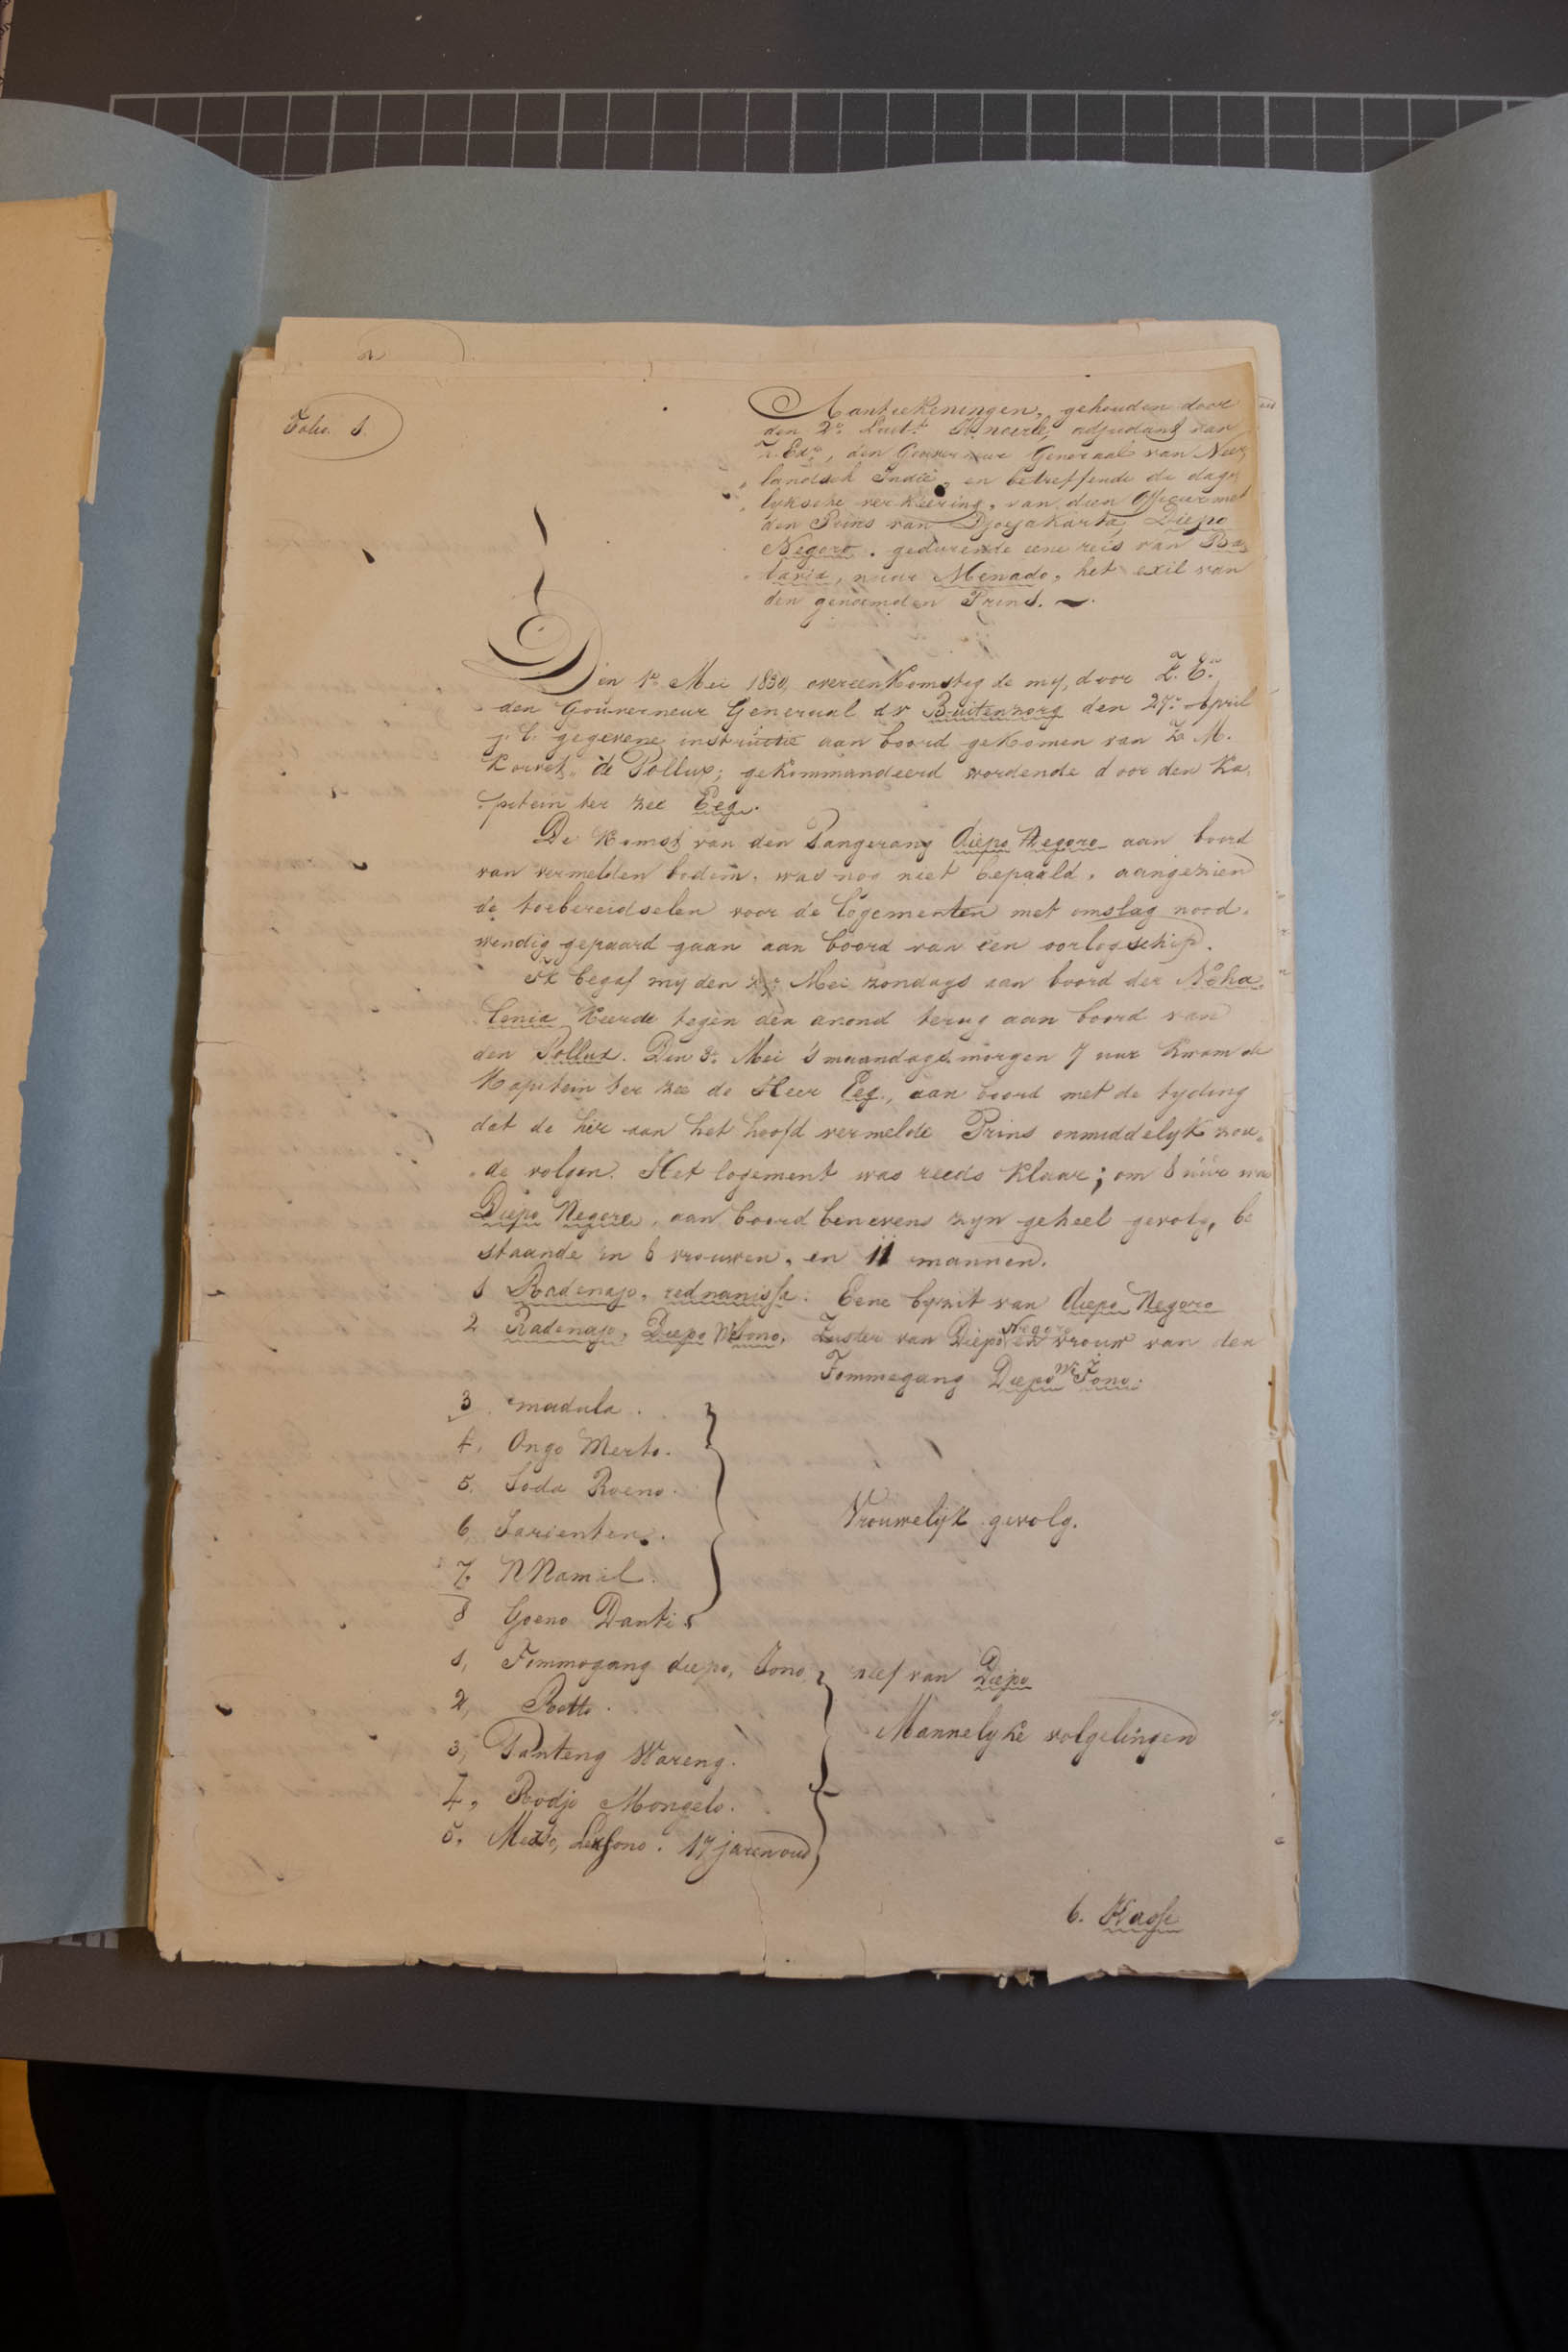 Folio. 1.
Aanteekeningen, gehouden door
den 2n. Luitt. Knoerle, adjudant van
Z. Exc., den Gouverneur Generaal van Neer„
„landsch Indië, en betreffende de dage„
„lyksche verkeering, van dien Officier met
den Prins van Djocjakarta, Diepo
Negoro. gedurende eene reis van Ba„
„tavia, naar Menado, het exil van
den genoemden Prins. —.
Den 1n. Mei 1830, overeenkomstig de my, door Z. E.
den Gouverneur Generaal dr Buitenzorg den 27n. April
j. l. gegevene instructie aan boord gekomen van Z. M.
Korvet „de Pollux; gekommandeerd wordende door den Ka„
„pitein ter zee Eeg.
De komst van den Pangerang diepo Negoro aan boord
van vermelden bodem, was nog niet bepaald, aangezien
de toebereidselen voor de logementen met omslag nood„
wendig gepaard gaan aan boord van een oorlogschip.
Ik begaf my den 2n. Mei zondags aan boord der Neha„
lenia keerde tegen den avond terug aan boord van
den Pollux. Den 3n. Mei 's maandags morgen 7 uur kwam de
Kapitein ter zee de Heer Eeg., aan boord met de tyding
dat de hier aan het hoofd vermelde Prins onmiddelyk zou„
„de volgen. Het logement was reeds klaar; om 8 uur was
Diepo Negoro, aan boord benevens zyn geheel gevolg, be
staande in 6 vrouwen, en 11 mannen.
1 Radenajo, rednanissa. Eene byzit van diepo Negoro
2 Radenajo, Diepo Wsono, Zuster van Diepo Negoro en vrouw van den
Tommegang Diepo Wisono.
3. madula.
4. Ongo Merto.
5. Soda Roeno.
6. Sarienten.
7. N Namil.
8 Goeno Danti
Vrouwelijk gevolg.
1, Tommogang diepo, Sono, nef van Diepo
2, Rotto.
3, Panteng Wareng.
4, Rodjo Mongelo.
5. Merto, Leksono. 17 jaren oud
Mannelyke volgelingen
6. Kasse